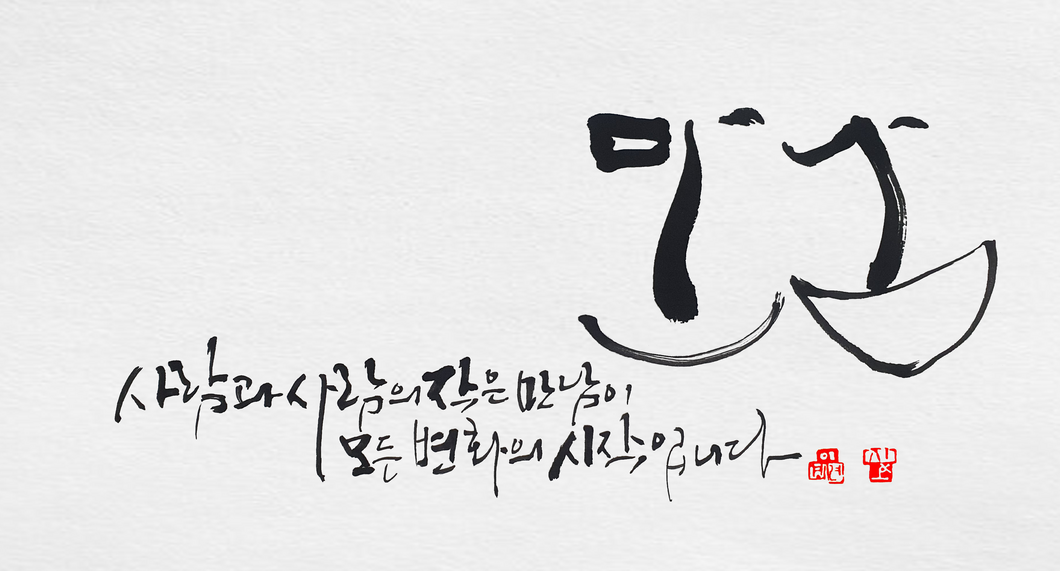 만남
사람과 사람의 작은 만남이
모든 변화의 시작입니다